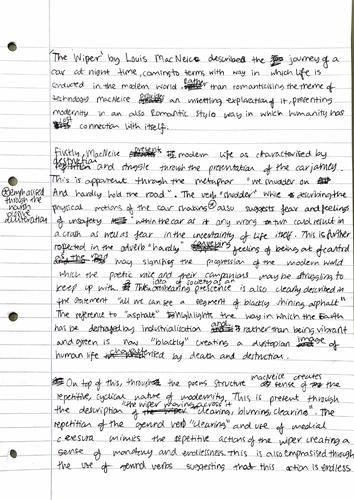 'The Wiper' by Louis MacNeice described the journey of a
car at night time, coming to terms with way in which life is
endured in the modern world. Rather than romanticising the theme of
technology MacNeice provides an unsettling exploration of it, presenting
modernity in an also Romantic style way in which humanity has
lost connection with itself.
Firstly, MacNeice presents modern life as characterised by
destruction and struggle through the presentation of the car journey.
This is apparent through the metaphor "we shudder on
And hardly hold the road". The verb "shudder" while describing the
physical motions of the car shaking also suggests fear and feelings
emphasised
through the
harsh
plosive
alliteration
of unsafety within the car as it any wrong could result in
a crash as well as fear in the uncertainty of life itself. This is further
reflected in the adverb "hardly" feeling of being out of control
may signifies the progression of the modern world
which the poetic voice and their companions may be struggling to
keep up with. The idea of society as an presence is also clearly described in
the statement "All we can see a segment of blackly shining asphalt"
The reference to "asphalt" highlights the way in which the Earth
has been destroyed by industrialization and rather than being vibrant
and green is now "blackly" creating a dystopian image of
human life characterised by death and destruction.
On top of this, through the poems structure MacNeice creates sense of the
repetitive, cyclical nature of modernity. This is present through
the description of the wiper moving across it "clearing, blurring, clearing". The
repetition of the gerund verb "clearing" and use of medial
caesura mimics the repetitive actions of the wiper creating a
sense of monotony and endlessness. This is also emphasised through
the use of gerund verbs suggesting that this action is endless